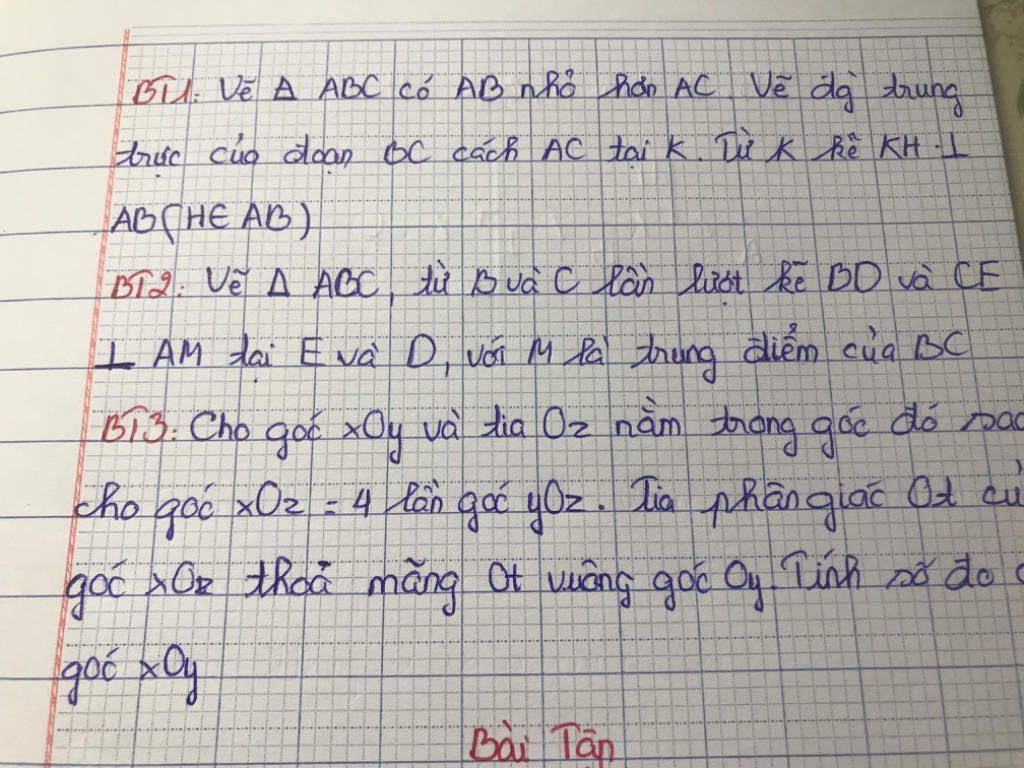 BT1: Vẽ Δ ABC có AB nhỏ hơn AC. Vẽ đg̀ trung
trực của đoạn BC cách AC tại K. Từ K kẽ KH ⊥
AB(H∈AB)
BT2: Vẽ Δ ABC, từ B và C lần lượt kẽ BD và CE
⊥ AM tại E và D, với M là trung điểm của BC
BT3: Cho góc xOy và tia Oz nằm trong góc đó sao
cho góc xOz = 4 lần góc yOz. Tia phân giác Ot củ
góc xOz thoả mãng Ot vuông góc Oy. Tính số đo
góc xOy
Bài Tập